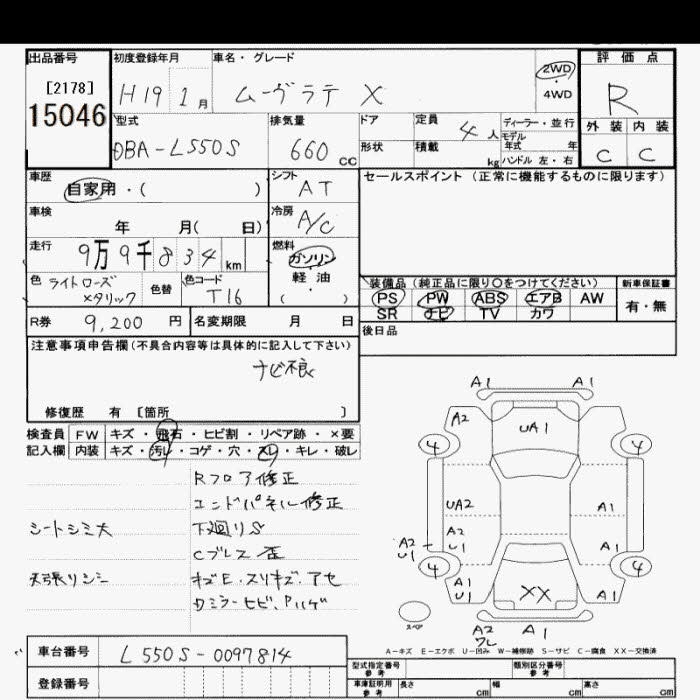 出品番号 初度登録年月 車名・グレード 評価点
[2178] H19 1月 ムーヴラテ X 2WD・4WD R
15046
型式 排気量 ドア 定員 ディーラー・並行 外装 内装
DBA-L550S 660CC 4人 モデル年式 年 C C
形状 積載 kg ハンドル 左・右
車歴 シフト セールスポイント(正常に機能するものに限ります)
自家用・( ) AT
車検 冷房
年 月( 日) A/C
走行 9万9千834km 燃料
ガソリン
軽油
・( )
色 ライトローズメタリック 色替 色コード T16
装備品(純正品に限り〇をつけてください) 新車保証書
PS PW ABS エアB AW 有・無
SR ナビ TV カワ
R券 9,200円 名変期限 月 日
後日品
注意事項申告欄(不具合内容等は具体的に記入して下さい)
ナビ不良
修復歴 有 [箇所 ]
検査員 FW キズ・飛石・ヒビ割・リペア跡・×要
記入欄 内装 キズ・汚レ・コゲ・穴・スレ・キレ・破レ
Rフロア修正
エンドパネル修正
シートシミ大 下廻りS
Cプレス歪
天張りシミ キズE.スリキズ.アセ
ロミラーヒビ.Pハゲ
A1 A1
A2 UA1
4 4
UA2 A1
A2
A2 U1 A1
U1
4 4
A1 XX A1
U1
スペア
A2 A1
ワレ
A-キズ E-エクボ U-凹み W-補修跡 S-サビ C-腐食 XX-交換済
車台番号 L550S-0097814
登録番号
型式指定番号 参考 類別区分番号 参考
車庫証明用 参考 長さ cm 幅 cm 高さ cm